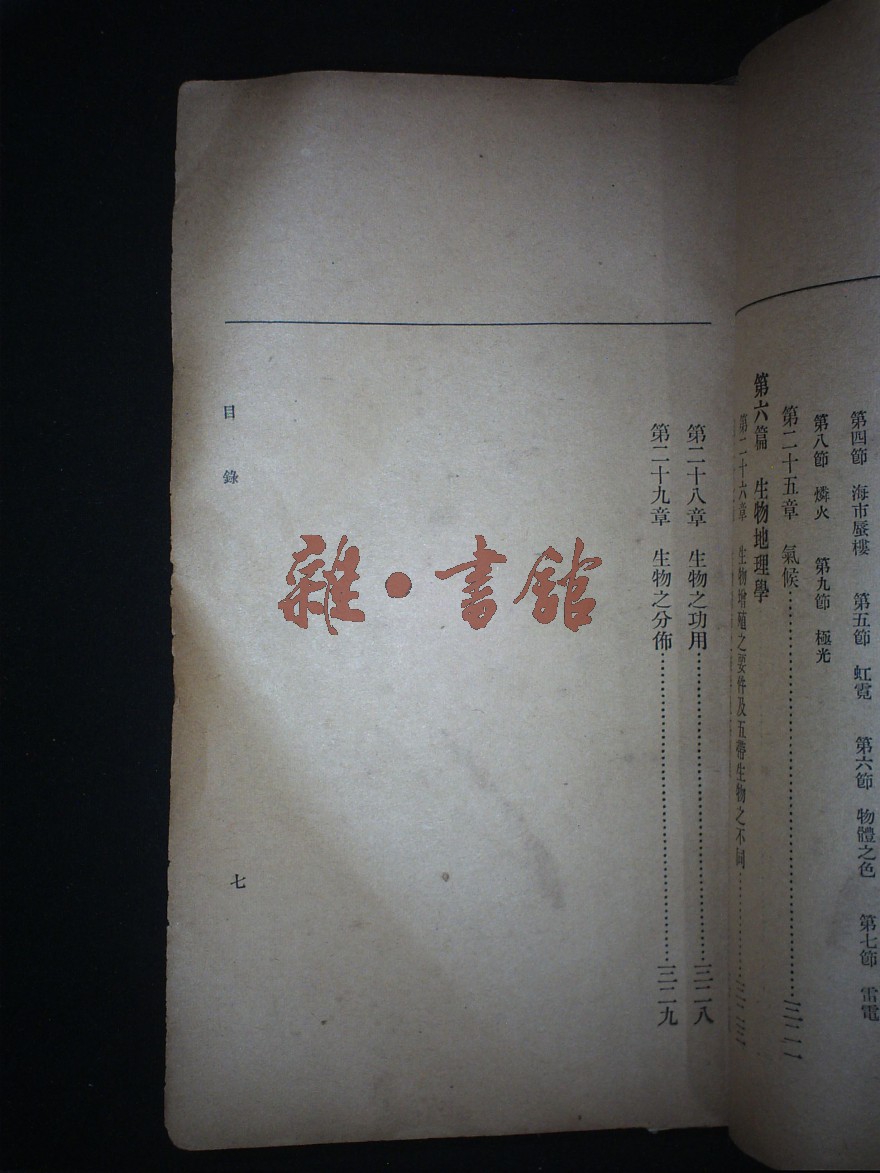 第四節　海市蜃樓　第五節　虹霓　第六節　物體之色　第七節　雷電
第八節　燐火　第九節　極光
第二十五章　氣候……三二一
第六篇　生物地理學
第二十六章　生物增殖之要件及五帶生物之不同……
第二十八章　生物之功用……三二八
第二十九章　生物之分佈……三二九
目錄
七
雜·書館